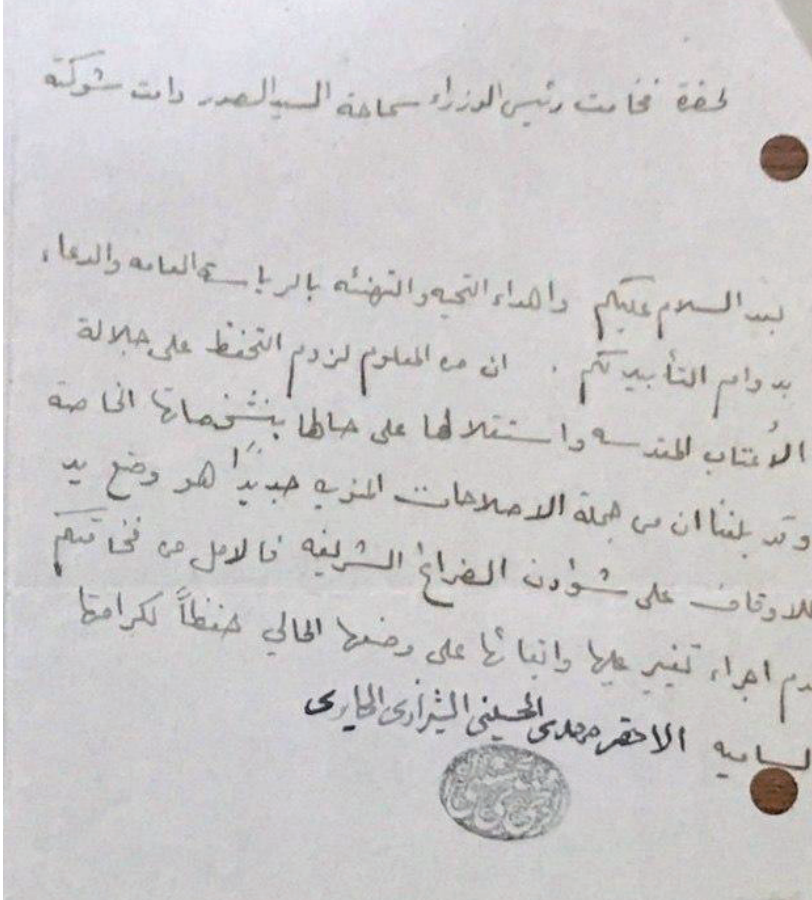 لحضرة فخامت رئيس الوزراء سماحة السيد الصدر دامت شوكته
بعد السلام عليكم واهداء التحيه والتهنئه بالرياسة العامه والدعاء
بدوام التأييد لكم . ان من المعلوم لزوم التحفظ على جلالة
الأعتاب المقدسه واستقلالها على حالها بتشخصاتها الخاصة
وقد بلغنا ان من جملة الاصلاحات المنويه جديدًا هو وضع يد
للاوقاف على شؤون الضرائح الشريفه فالامل من فخامتكم
دم اجراء تغيير عليها وابقائها على وضعها الحالي حفظاً لكرامتها
لساميه الاحقر مهدي الحسيني الشيرازي الحايري